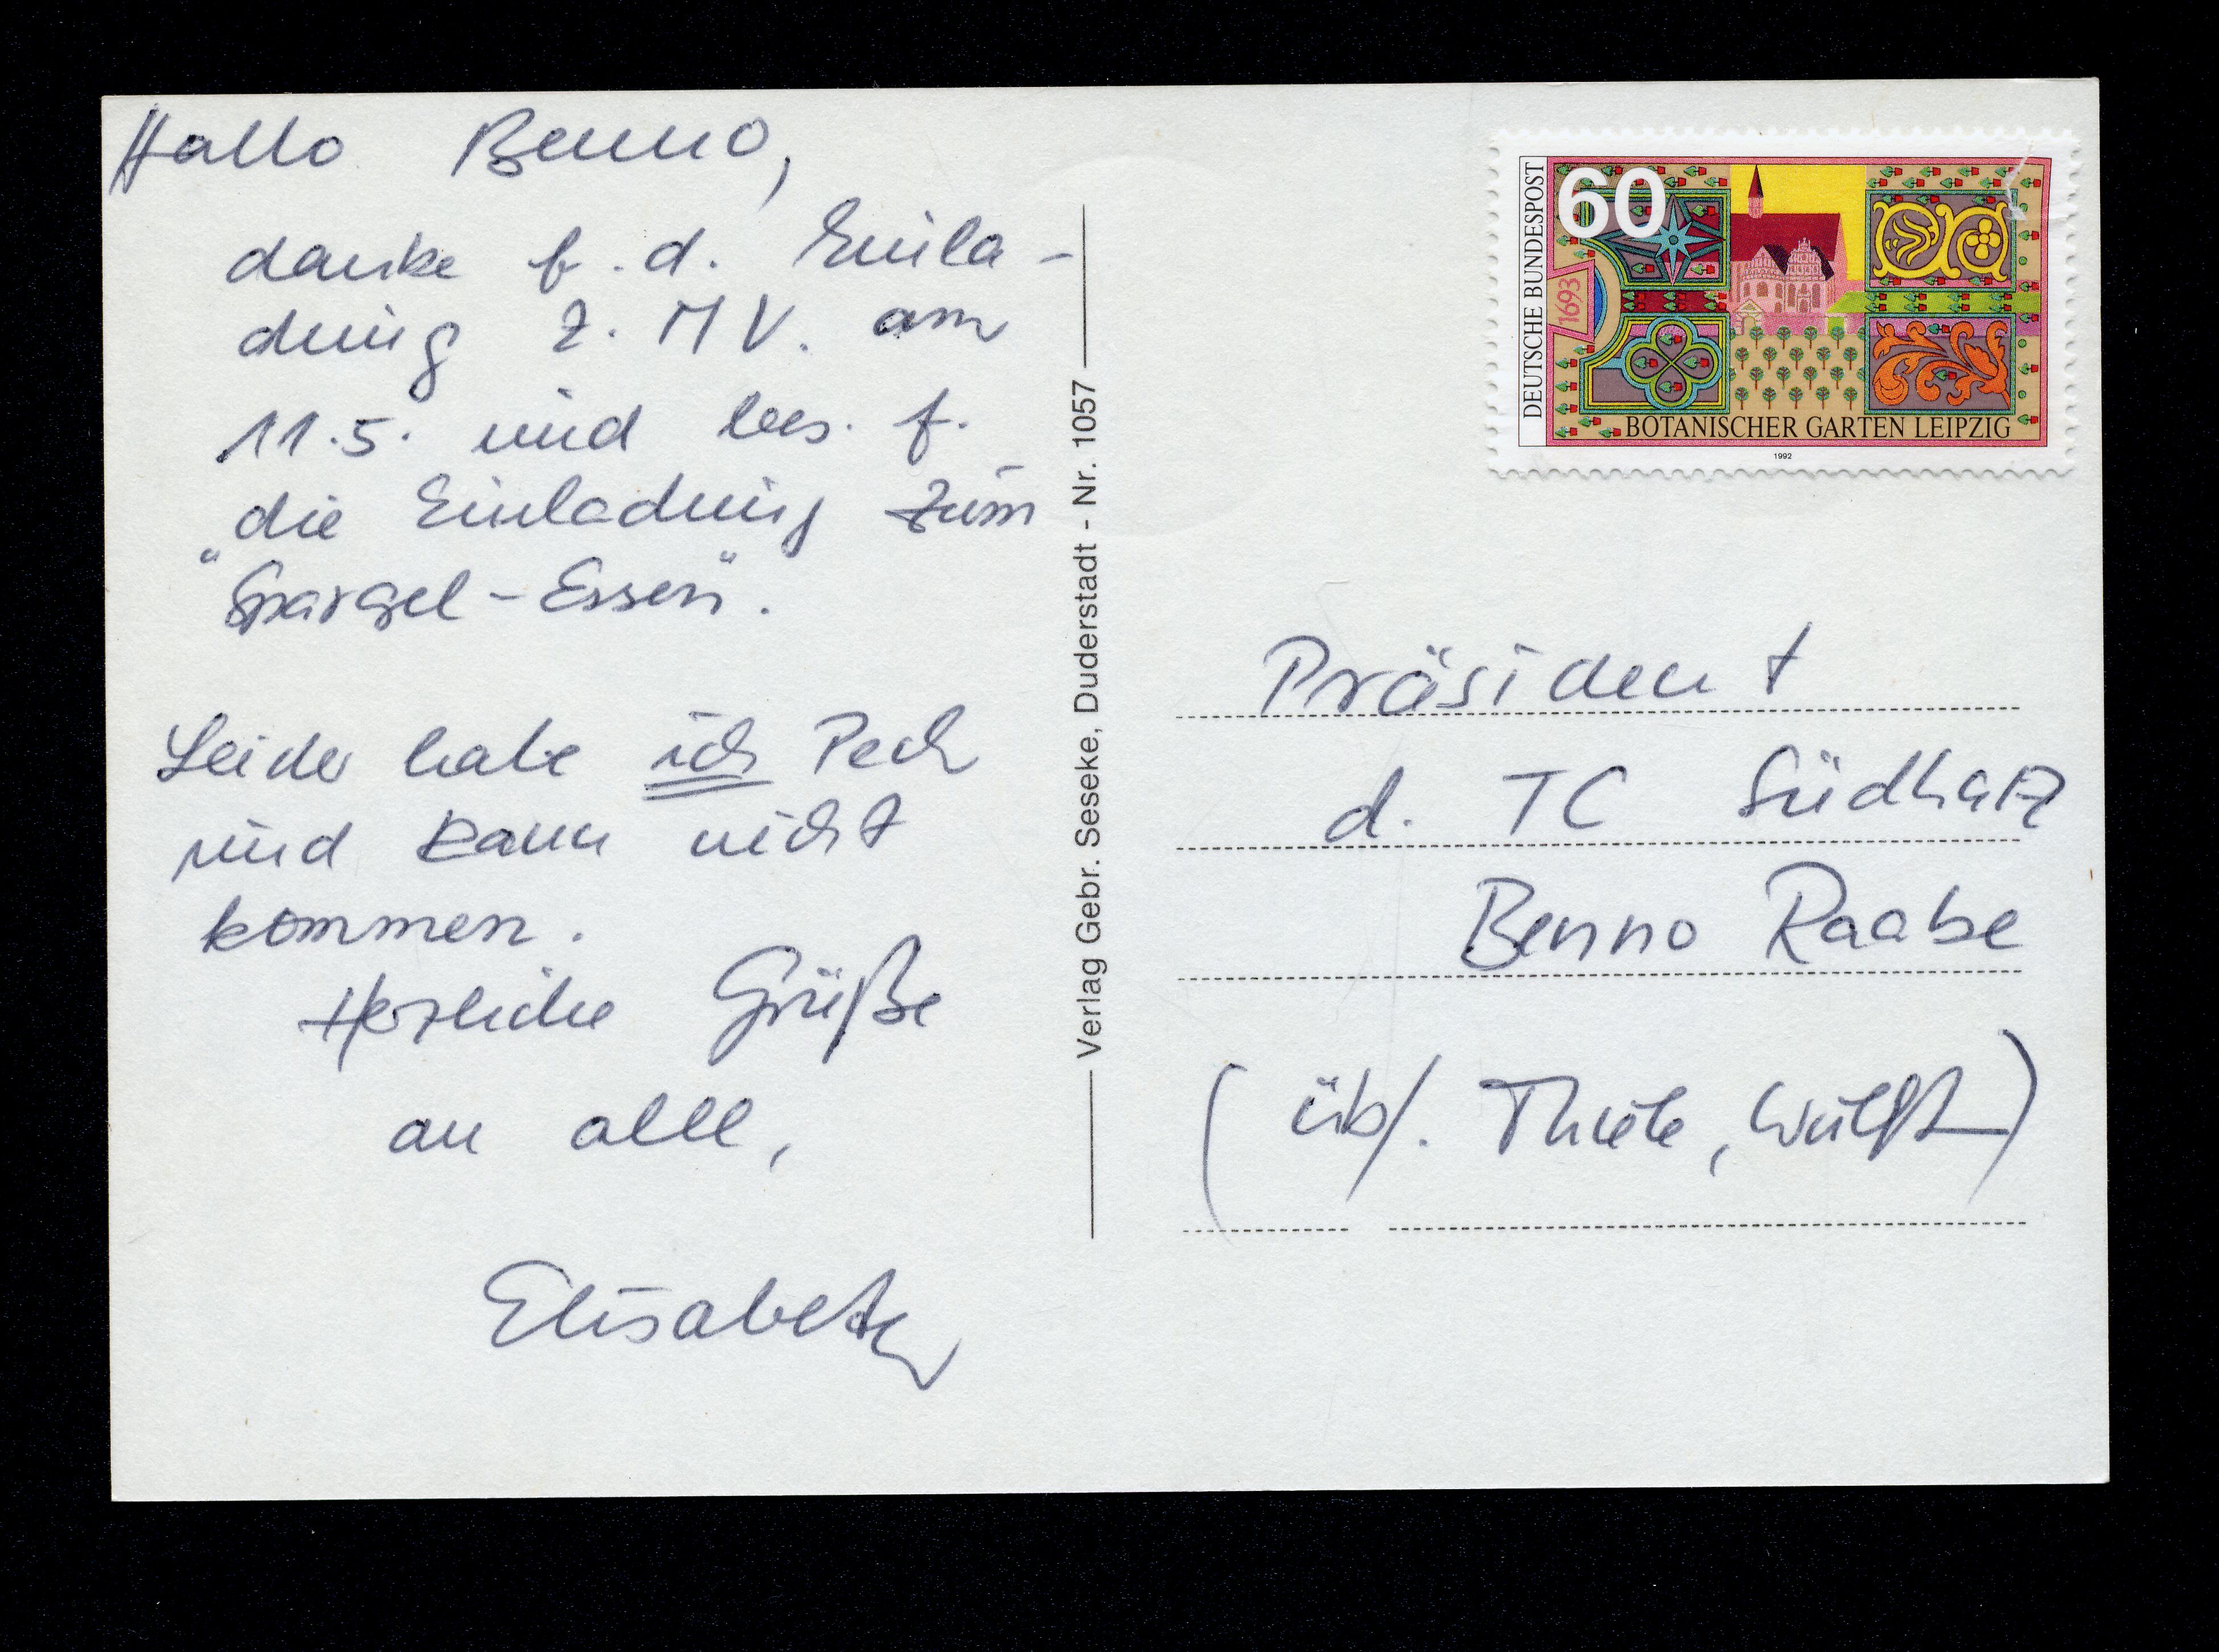 Hallo Benno,
danke f. d. Einla-
dung z. MV. am
11.5. und bes. f.
die Einladung zum
"Spargel-Essen".
Leider habe ich Pech
und kann nicht
kommen.
Herzliche Grüße
an alle,
Elisabeth
Verlag Gebr. Seseke, Duderstadt - Nr. 1057
DEUTSCHE BUNDESPOST
60
1693
BOTANISCHER GARTEN LEIPZIG
1992
Präsident
d. TC Südharz
Benno Raabe
(üb/. Thiele, Wulft)